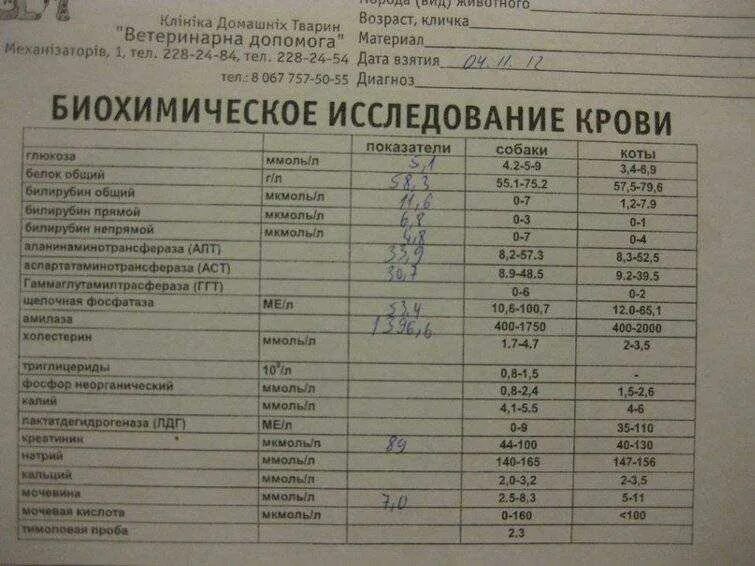 Порода (вид) животного
Клініка Домашніх Тварин
Возраст, кличка
"Ветеринарна допомога"
Материал
Механізаторів, 1, тел. 228-24-84, тел. 228-24-54
Дата взятия 04.11.12
тел.: 8 067 757-50-55
Диагноз
БИОХИМИЧЕСКОЕ ИССЛЕДОВАНИЕ КРОВИ
показатели собаки коты
глюкоза ммоль/л 5,1 4.2-5-9 3,4-6,9
белок общий г/л 58,3 55.1-75.2 57,5-79,6
билирубин общий мкмоль/л 11,6 0-7 1,2-7.9
билирубин прямой мкмоль/л 6,8 0-3 0-1
билирубин непрямой мкмоль/л 4,8 0-7 0-4
аланинаминотрансфераза (АЛТ) 33,9 8,2-57.3 8,3-52,5
аспартатаминотрансфераза (АСТ) 30,7 8.9-48.5 9.2-39.5
Гаммаглутамилтрасфераза (ГГТ) 0-6 0-2
щелочная фосфатаза МЕ/л 53,4 10,6-100,7 12.0-65,1
амилаза 1396,6 400-1750 400-2000
холестерин ммоль/л 1.7-4.7 2-3,5
триглицериды 10³/л 0,8-1,5 -
фосфор неорганический ммоль/л 0,8-2,4 1,5-2,6
калий ммоль/л 4,1-5.5 4-6
лактатдегидрогеназа (ЛДГ) МЕ/л 0-9 35-110
креатинин мкмоль/л 89 44-100 40-130
натрий ммоль/л 140-165 147-156
кальций ммоль/л 2,0-3,2 2-3,5
мочевина ммоль/л 7,0 2.5-8,3 5-11
мочевая кислота мкмоль/л 0-160 <100
тимоловая проба 2.3